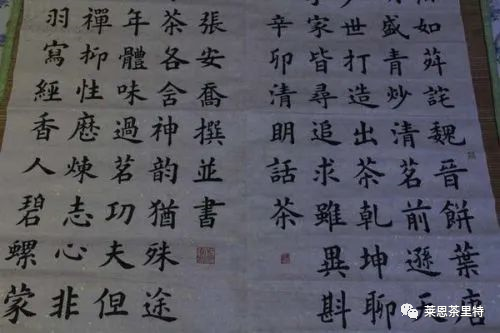 如荈詫魏晉餅葉唐
盛青炒清茗前遜元
世打造出茶乾坤聊
家皆尋追求雖異斟
辛卯清明話茶
張安喬撰並書
茶各含神韵猶殊途
年體味過茗功夫但
禪抑性歷煉志心非
羽寫經香人碧螺蒙
莱恩茶里特